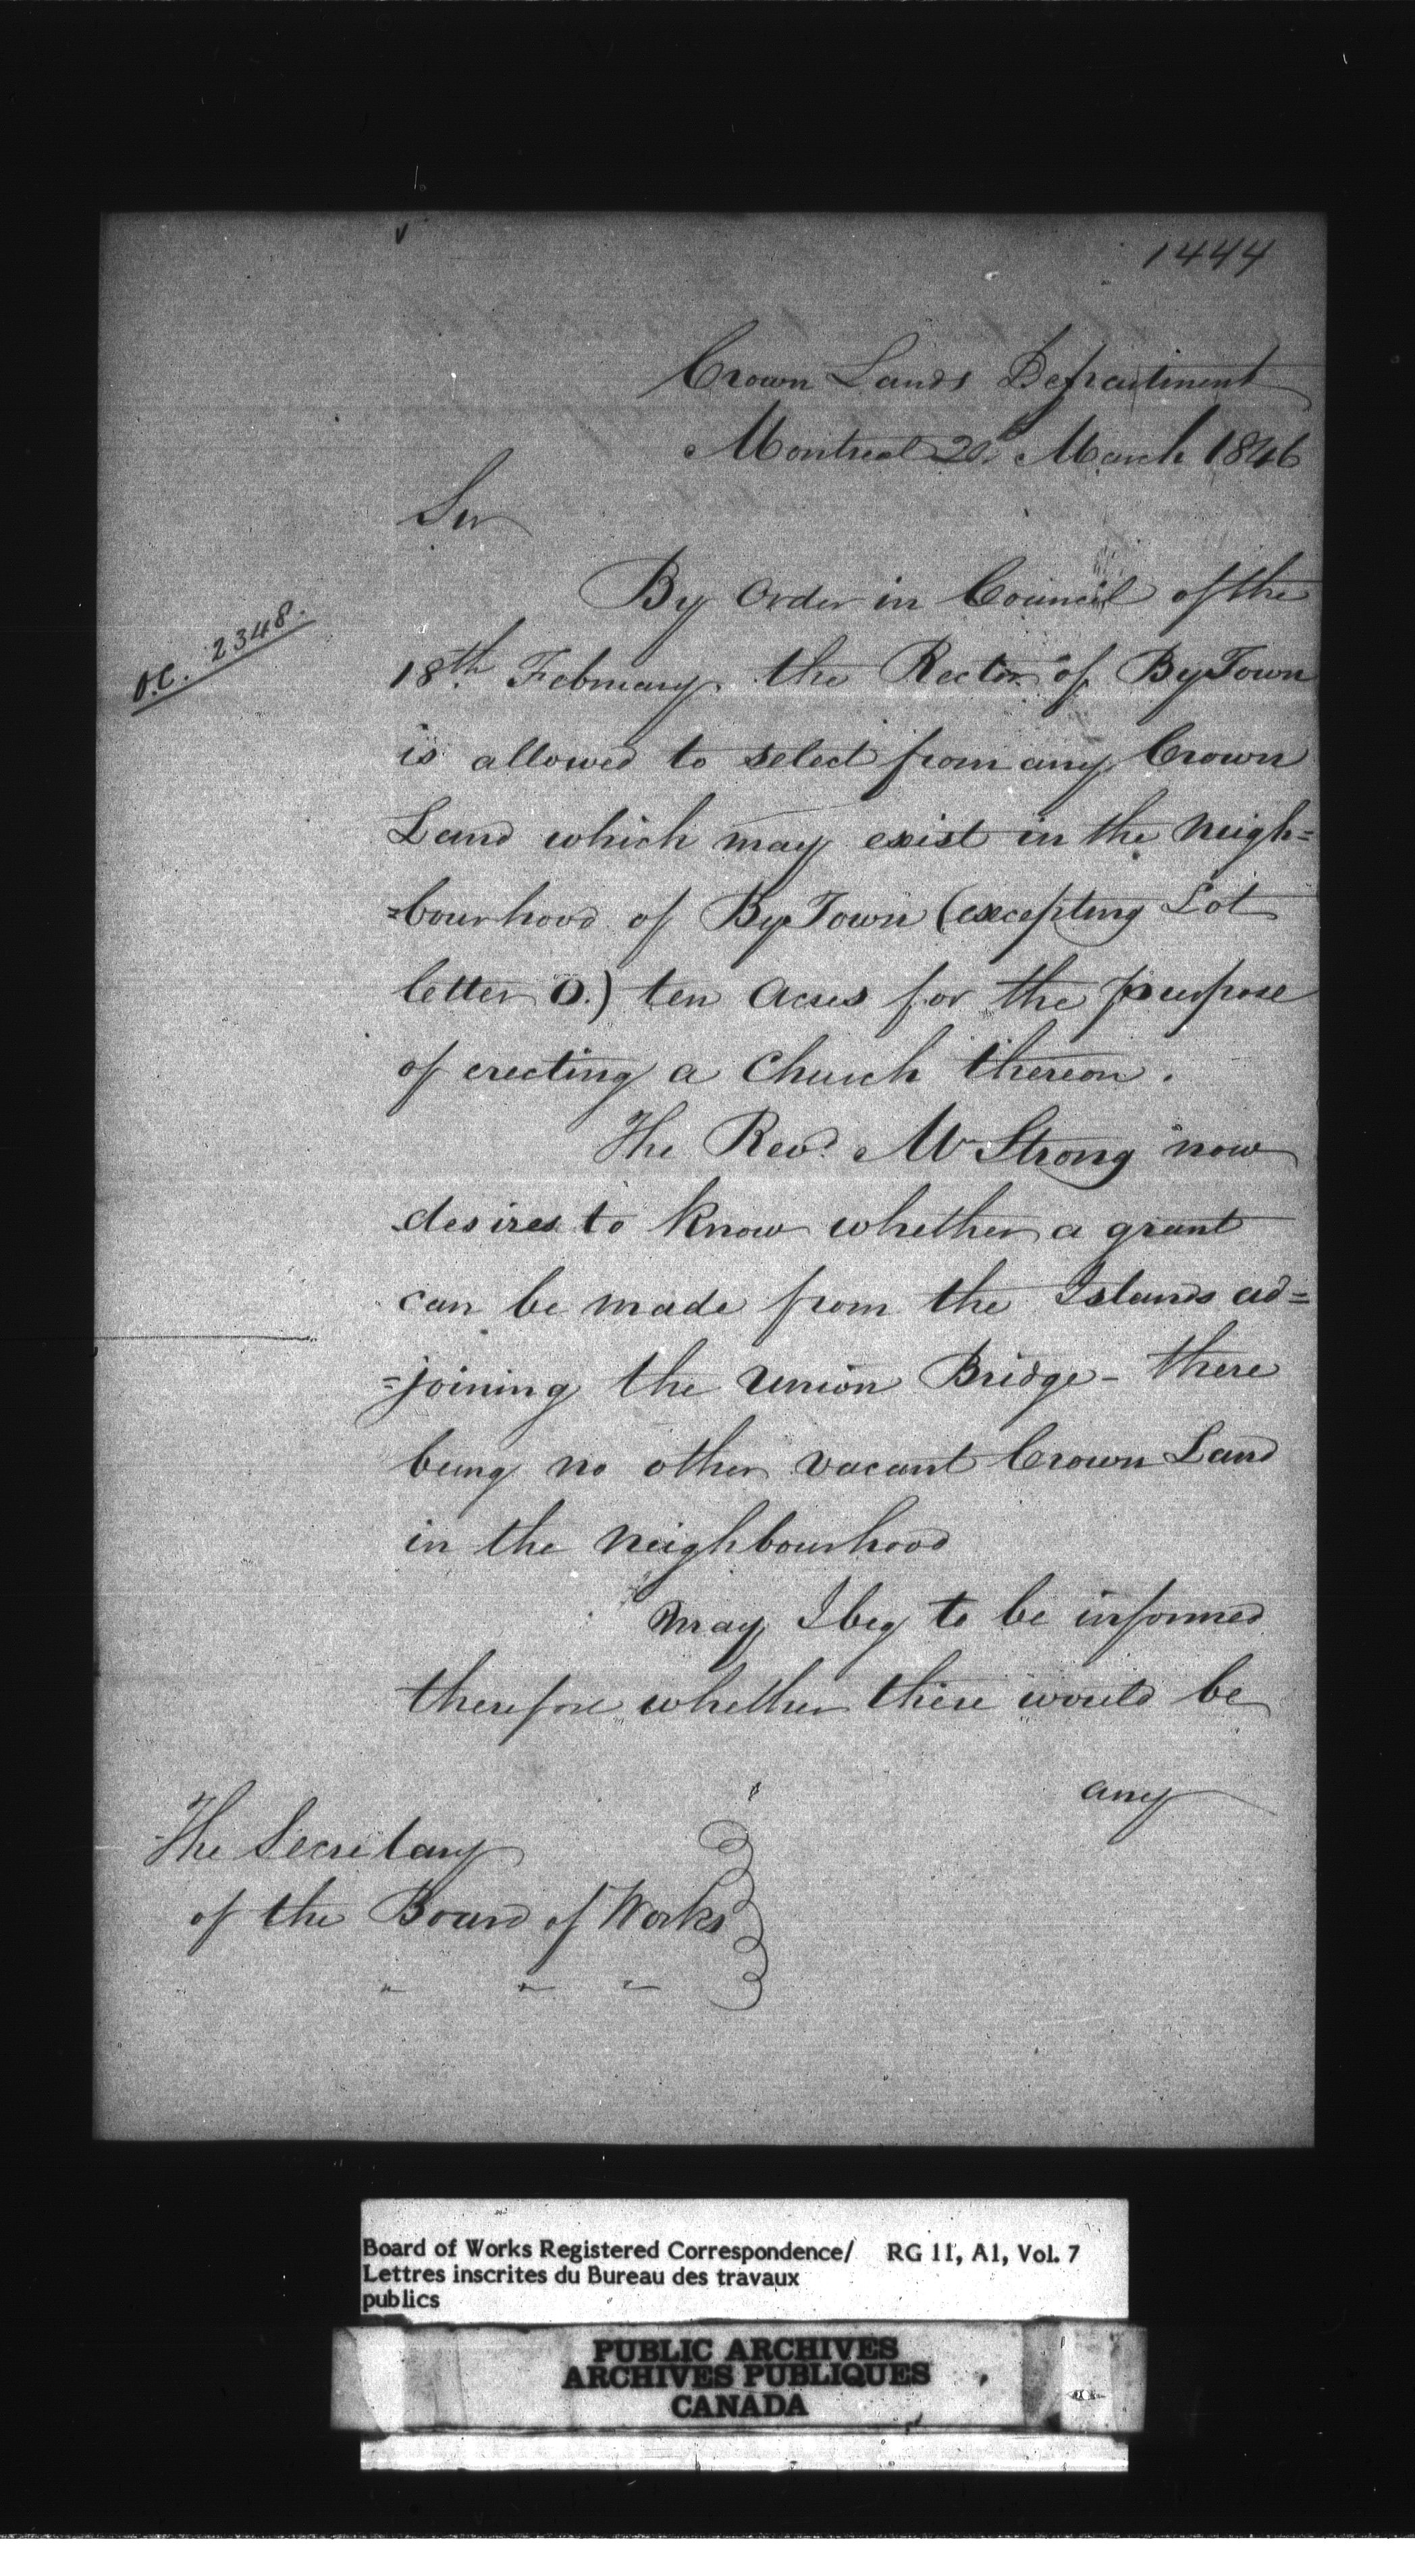 1444
Crown Lands Department
Montreal 20th March 1846
Sir
By Order in Council of the
O.C. 2348.
18th February. the Rector of By Town
is allowed to select from any Crown
Land which may exist in the neigh=
=bourhood of By Town (excepting Lot
letter O.) ten Acres for the purpose
of erecting a Church thereon.
The Revd. Mr Strong now
desires to know whether a grant
can be made from the Islands ad=
=joining the Union Bridge - there
being no other vacant Crown Land
in the neighbourhood
May I beg to be informed
therefore whether there would be
any
The Secretary
of the Board of Works
" " "
Board of Works Registered Correspondence/ RG 11, A1, Vol. 7
Lettres inscrites du Bureau des travaux
publics
PUBLIC ARCHIVES
ARCHIVES PUBLIQUES
CANADA